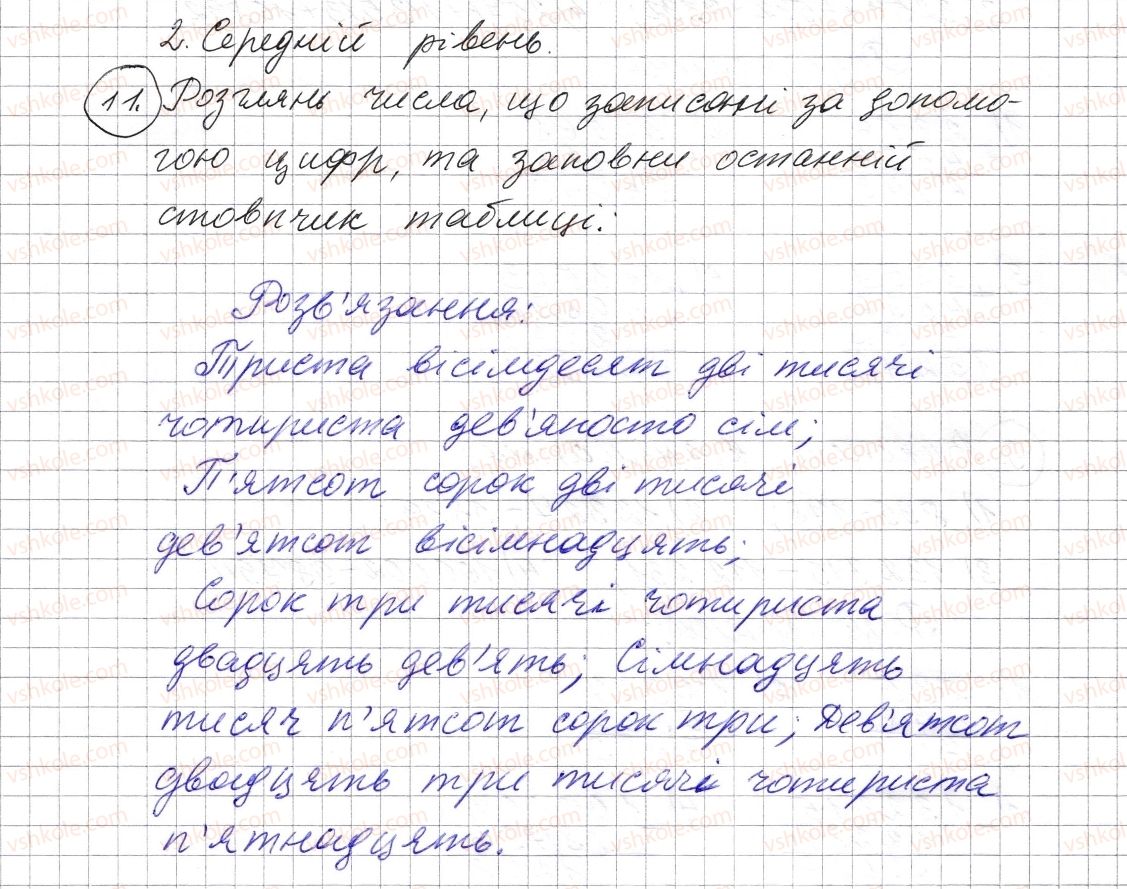 2. Середній рівень.
11. Розглянь числа, що записані за допомо-
гою цифр, та заповни останній
стовпчик таблиці:
Розв'язання:
Триста вісімдесят дві тисячі
чотириста дев'яносто сім;
П'ятсот сорок дві тисячі
дев'ятсот вісімнадцять;
Сорок три тисячі чотириста
двадцять дев'ять; Сімнадцять
тисяч п'ятсот сорок три; Дев'ятсот
двадцять три тисячі чотириста
п'ятнадцять.